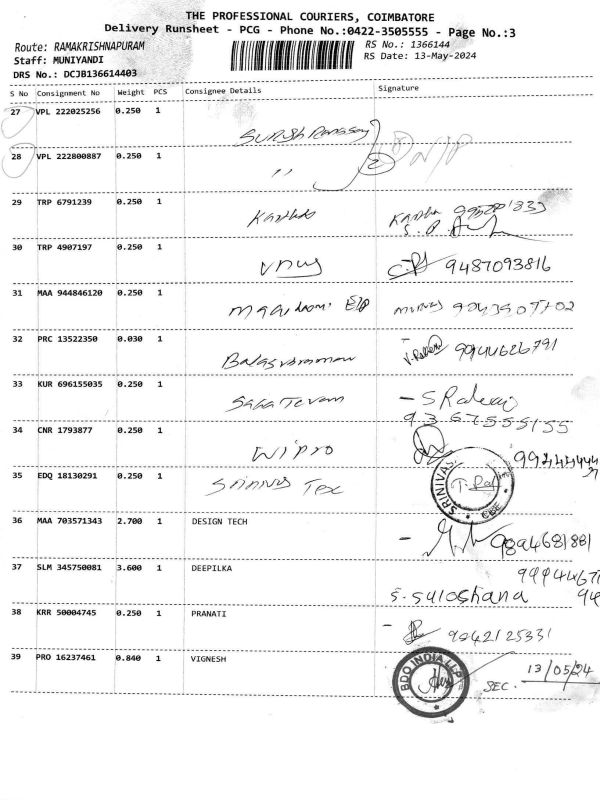 THE PROFESSIONAL COURIERS, COIMBATORE
Delivery Runsheet - PCG - Phone No.:0422-3505555 - Page No.:3
Route: RAMAKRISHNAPURAM
RS No.: 1366144
Staff: MUNIYANDI
RS Date: 13-May-2024
DRS No.: DCJB136614403
S No Consignment No Weight PCS Consignee Details Signature
27 VPL 222025256 0.250 1 Suresh
28 VPL 222800887 0.250 1 ,, 2
29 TRP 6791239 0.250 1
30 TRP 4907197 0.250 1 9487093816
31 MAA 944846120 0.250 1
32 PRC 13522350 0.030 1 9944626791
33 KUR 696155035 0.250 1 - S
9367555155
34 CNR 1793877 0.250 1 WIPRO
35 EDQ 18130291 0.250 1 Srinivas Tex
SRINIVAS
CBE
36 MAA 703571343 2.700 1 DESIGN TECH - 9894681881
37 SLM 345750081 3.600 1 DEEPILKA
S. Suloshana
38 KRR 50004745 0.250 1 PRANATI - 9842125331
39 PRO 16237461 0.840 1 VIGNESH 13/05/24
BDO INDIA LLP
SEC.